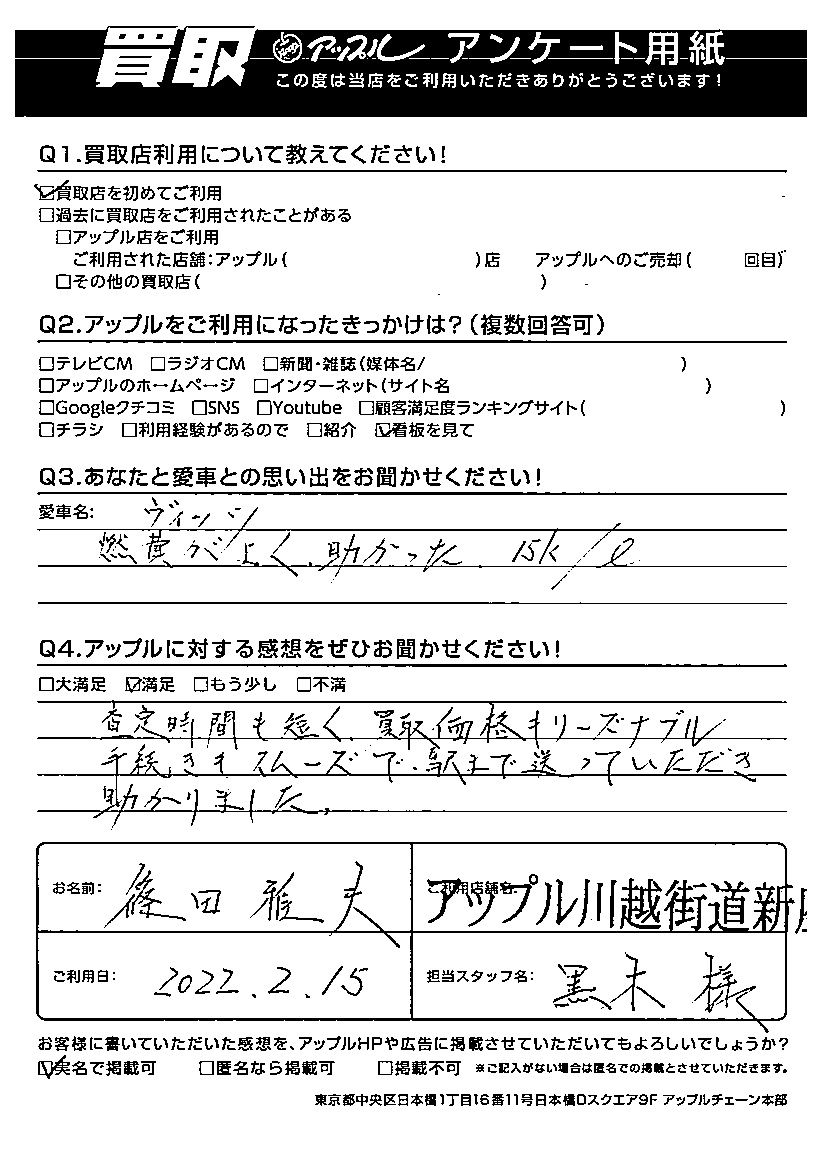 買取 アップル アンケート用紙
この度は当店をご利用いただきありがとうございます!
Q1.買取店利用について教えてください!
☑買取店を初めてご利用
□過去に買取店をご利用されたことがある
□アップル店をご利用
ご利用された店舗:アップル( )店 アップルへのご売却( 回目)
□その他の買取店( )
Q2.アップルをご利用になったきっかけは?(複数回答可)
□テレビCM □ラジオCM □新聞・雑誌(媒体名/ )
□アップルのホームページ □インターネット(サイト名 )
□Googleクチコミ □SNS □Youtube □顧客満足度ランキングサイト( )
□チラシ □利用経験があるので □紹介 ☑看板を見て
Q3.あなたと愛車との思い出をお聞かせください!
愛車名: ヴィッツ
燃費がよく、助かった. 15k/ℓ
Q4.アップルに対する感想をぜひお聞かせください!
□大満足 ☑満足 □もう少し □不満
査定時間も短く、買取価格もリーズナブル
手続きもスムーズで、駅まで送っていただき
助かりました。
お名前: 篠田 雅夫
ご利用店舗名: アップル川越街道新座
ご利用日: 2022.2.15
担当スタッフ名: 黒木 様
お客様に書いていただいた感想を、アップルHPや広告に掲載させていただいてもよろしいでしょうか?
☑実名で掲載可 □匿名なら掲載可 □掲載不可 ※ご記入がない場合は匿名での掲載とさせていただきます。
東京都中央区日本橋1丁目16番11号日本橋Dスクエア9F アップルチェーン本部